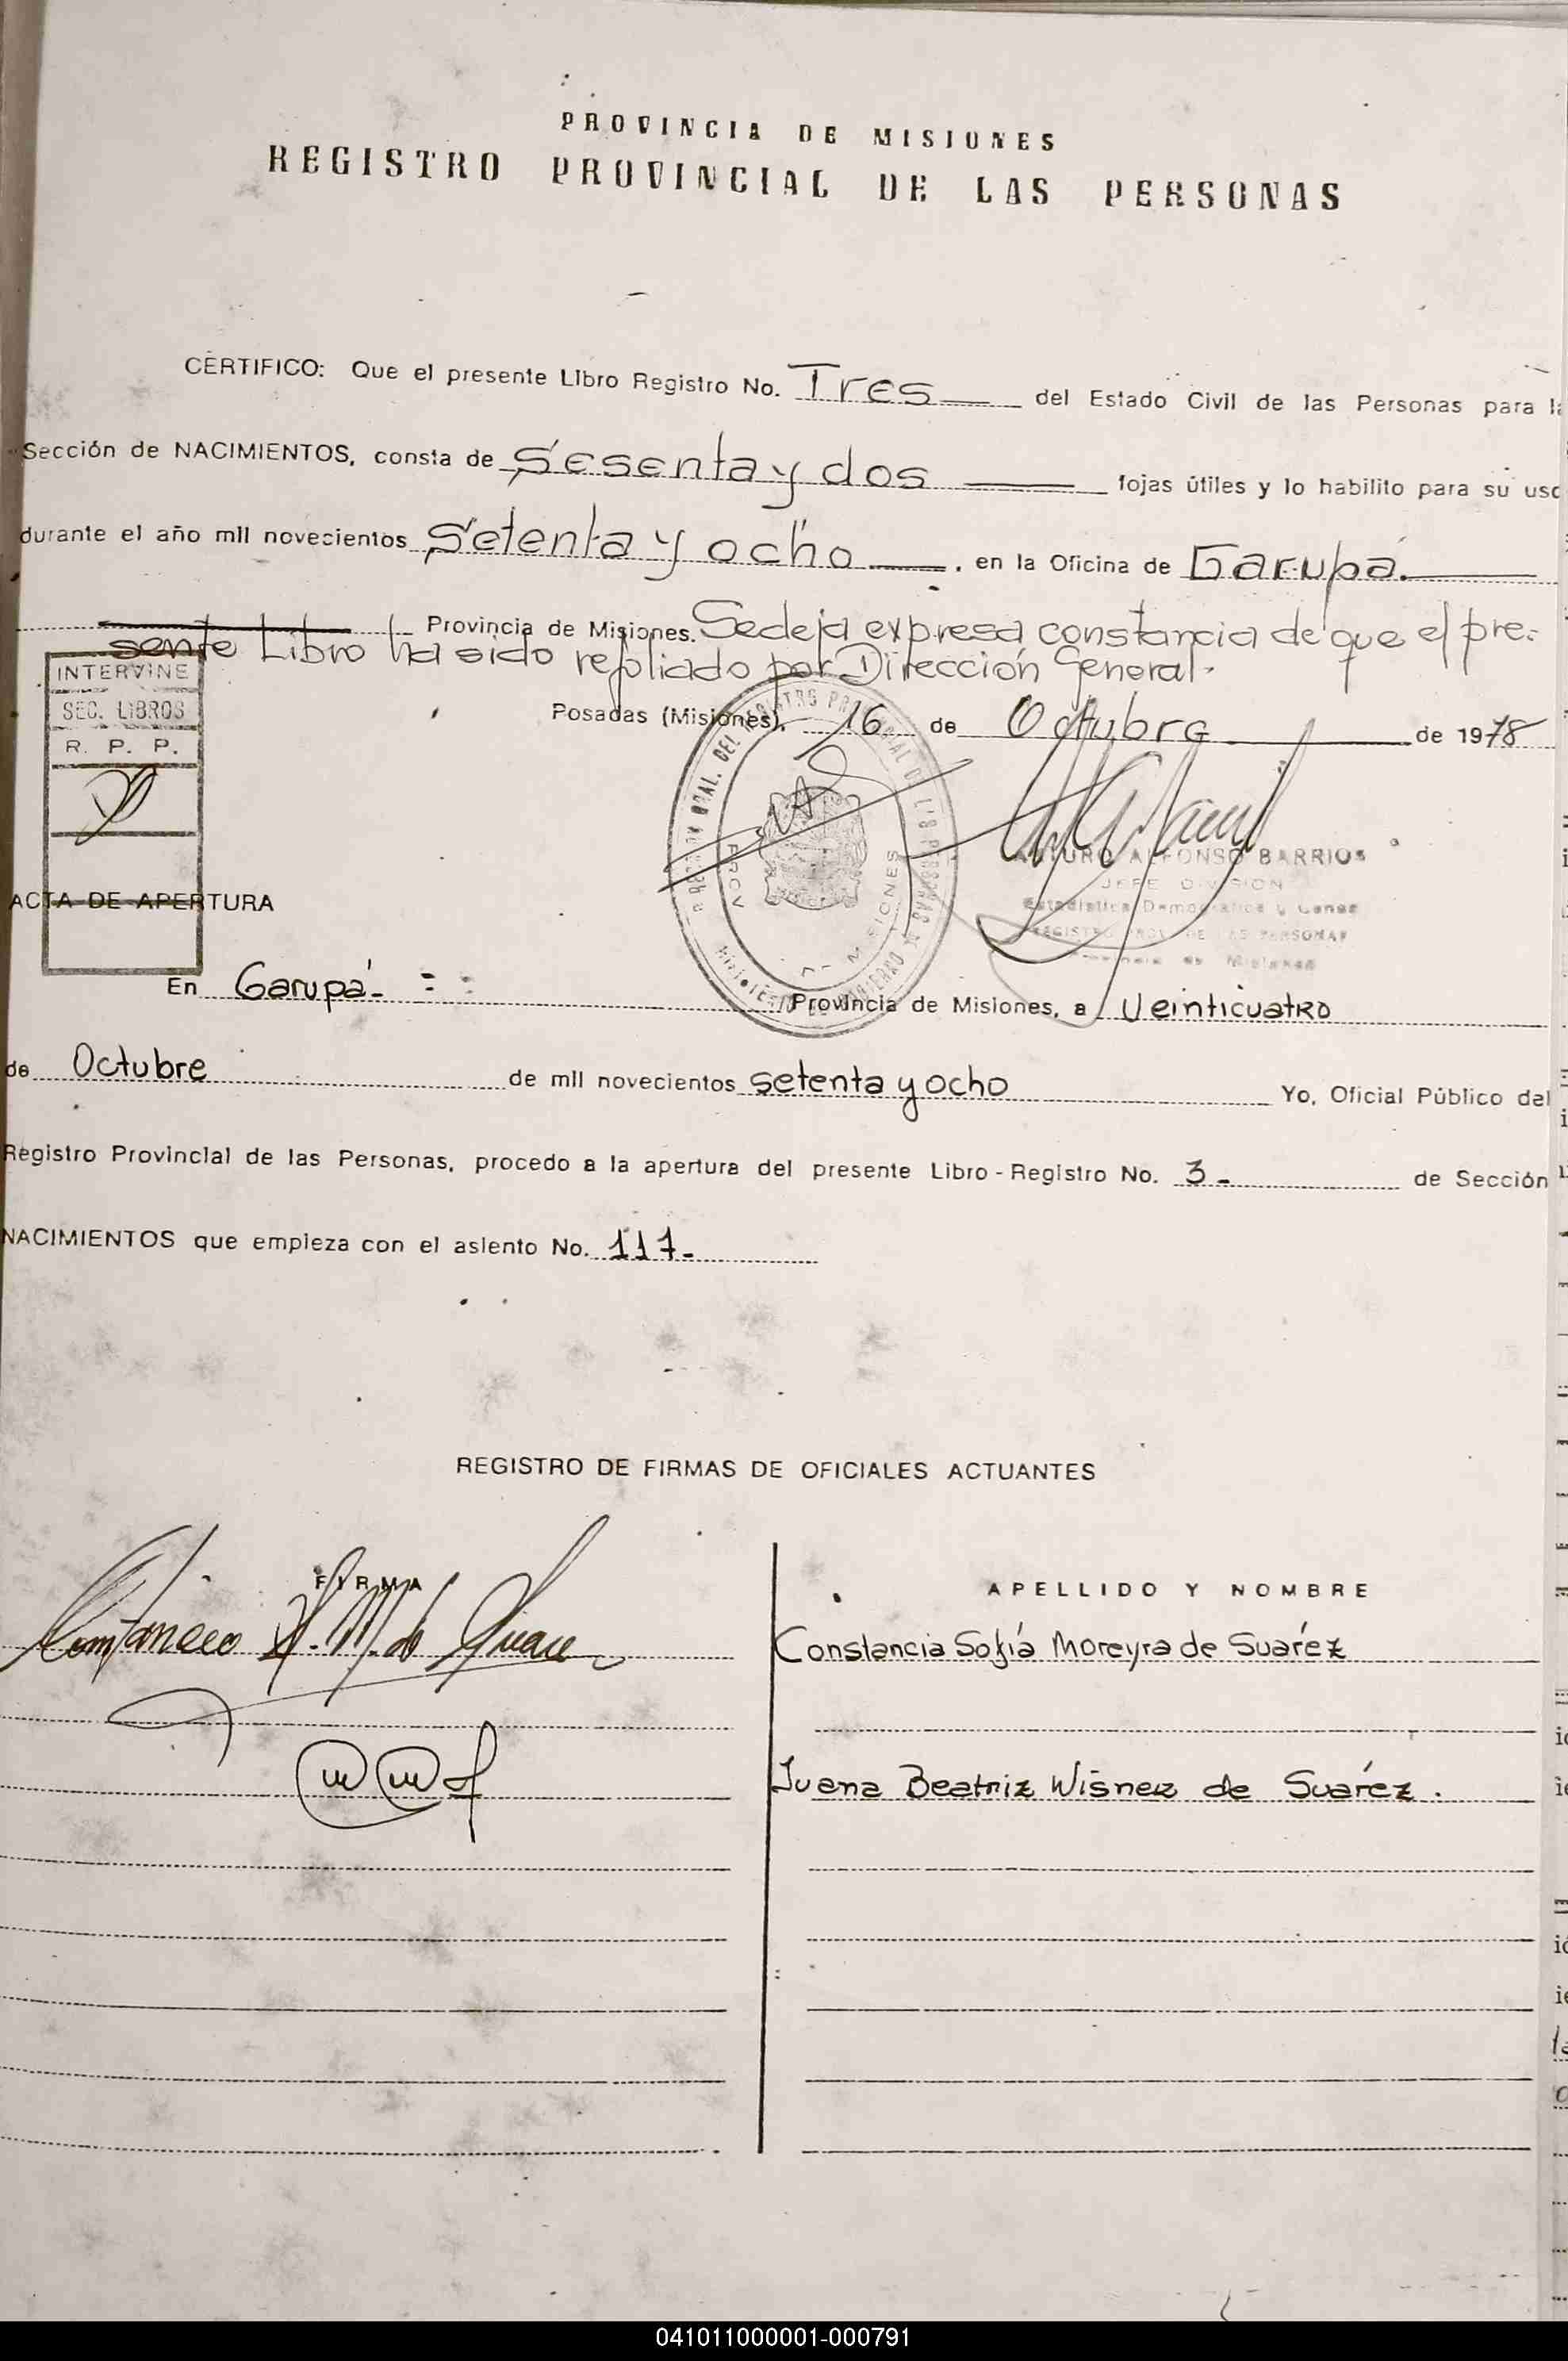 PROVINCIA DE MISIONES
REGISTRO PROVINCIAL DE LAS PERSONAS
CERTIFICO: Que el presente Libro Registro No. Tres del Estado Civil de las Personas para la
Sección de NACIMIENTOS, consta de Sesenta y dos fojas útiles y lo habilito para su uso
durante el año mil novecientos Setenta y ocho, en la Oficina de Garupá.
Provincia de Misiones. Se deja expresa constancia de que el pre-
sente Libro ha sido refoliado por Dirección General.
INTERVINE
SEC. LIBROS
R. P. P.
Posadas (Misiones), 16 de Octubre de 1978
ARTURO ALFONSO BARRIOS
JEFE DIVISION
ACTA DE APERTURA
En Garupá- Provincia de Misiones, a Veinticuatro
de Octubre de mil novecientos setenta y ocho Yo, Oficial Público del
Registro Provincial de las Personas, procedo a la apertura del presente Libro - Registro No. 3- de Sección
NACIMIENTOS que empieza con el asiento No. 117-
REGISTRO DE FIRMAS DE OFICIALES ACTUANTES
FIRMA
APELLIDO Y NOMBRE
Constancia Sofía Moreyra de Suaréz
Juana Beatriz Wisner de Suaréz.
041011000001-000791